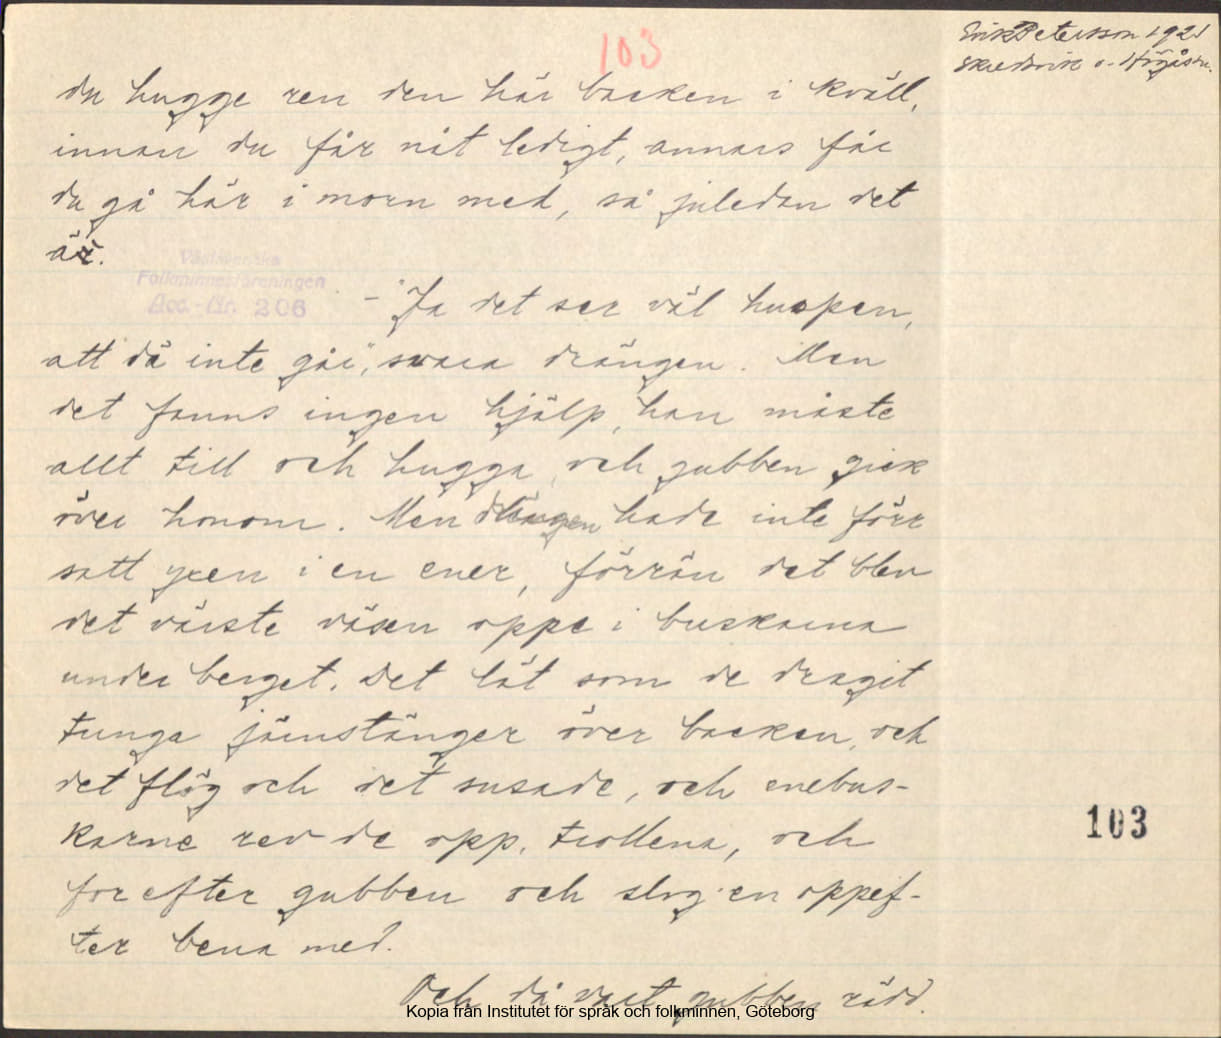 103
Erik Petersson 1921
du hugge ren den här backen i kväll,
innan du får nåt ledigt, annars får
du gå här i morn med, så juledan det
är.
Västsvenska
Folkminnesföreningen
Acc.-Nr. 206
- "Ja det ser väl huspen,
att dä inte går", svara drängen. Men
det fanns ingen hjälp, han måste
allt till och hugga, och gubben gick
över honom. Men drängen hade inte förr
satt yxen i en ener, förrän det blev
det värste väsen oppe i buskarna
under berget. Det lät som de dragit
tunga järnstänger över backen, och
det flög och det susade, och enebus-
karne rev de opp, trollena, och
for efter gubben och slog en oppef-
ter bena med.
Och då vart gubben rädd.
103
Kopia från Institutet för språk och folkminnen, Göteborg